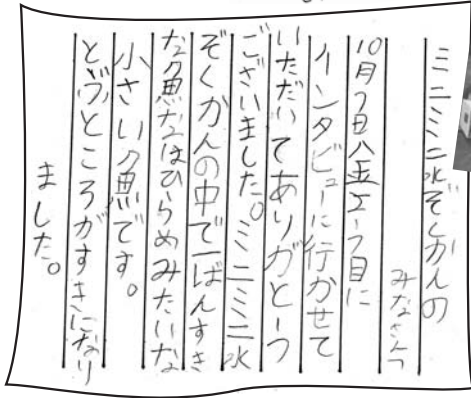 ミニミニ水ぞくかんの
みなさんへ
10月7日(金)に
インタビューに行かせて
いただいてありがとう
ございました。ミニミニ水
ぞくかんの中で一ばんすき
な魚はひらめみたいな
小さい魚です。
ところがすきになり
ました。